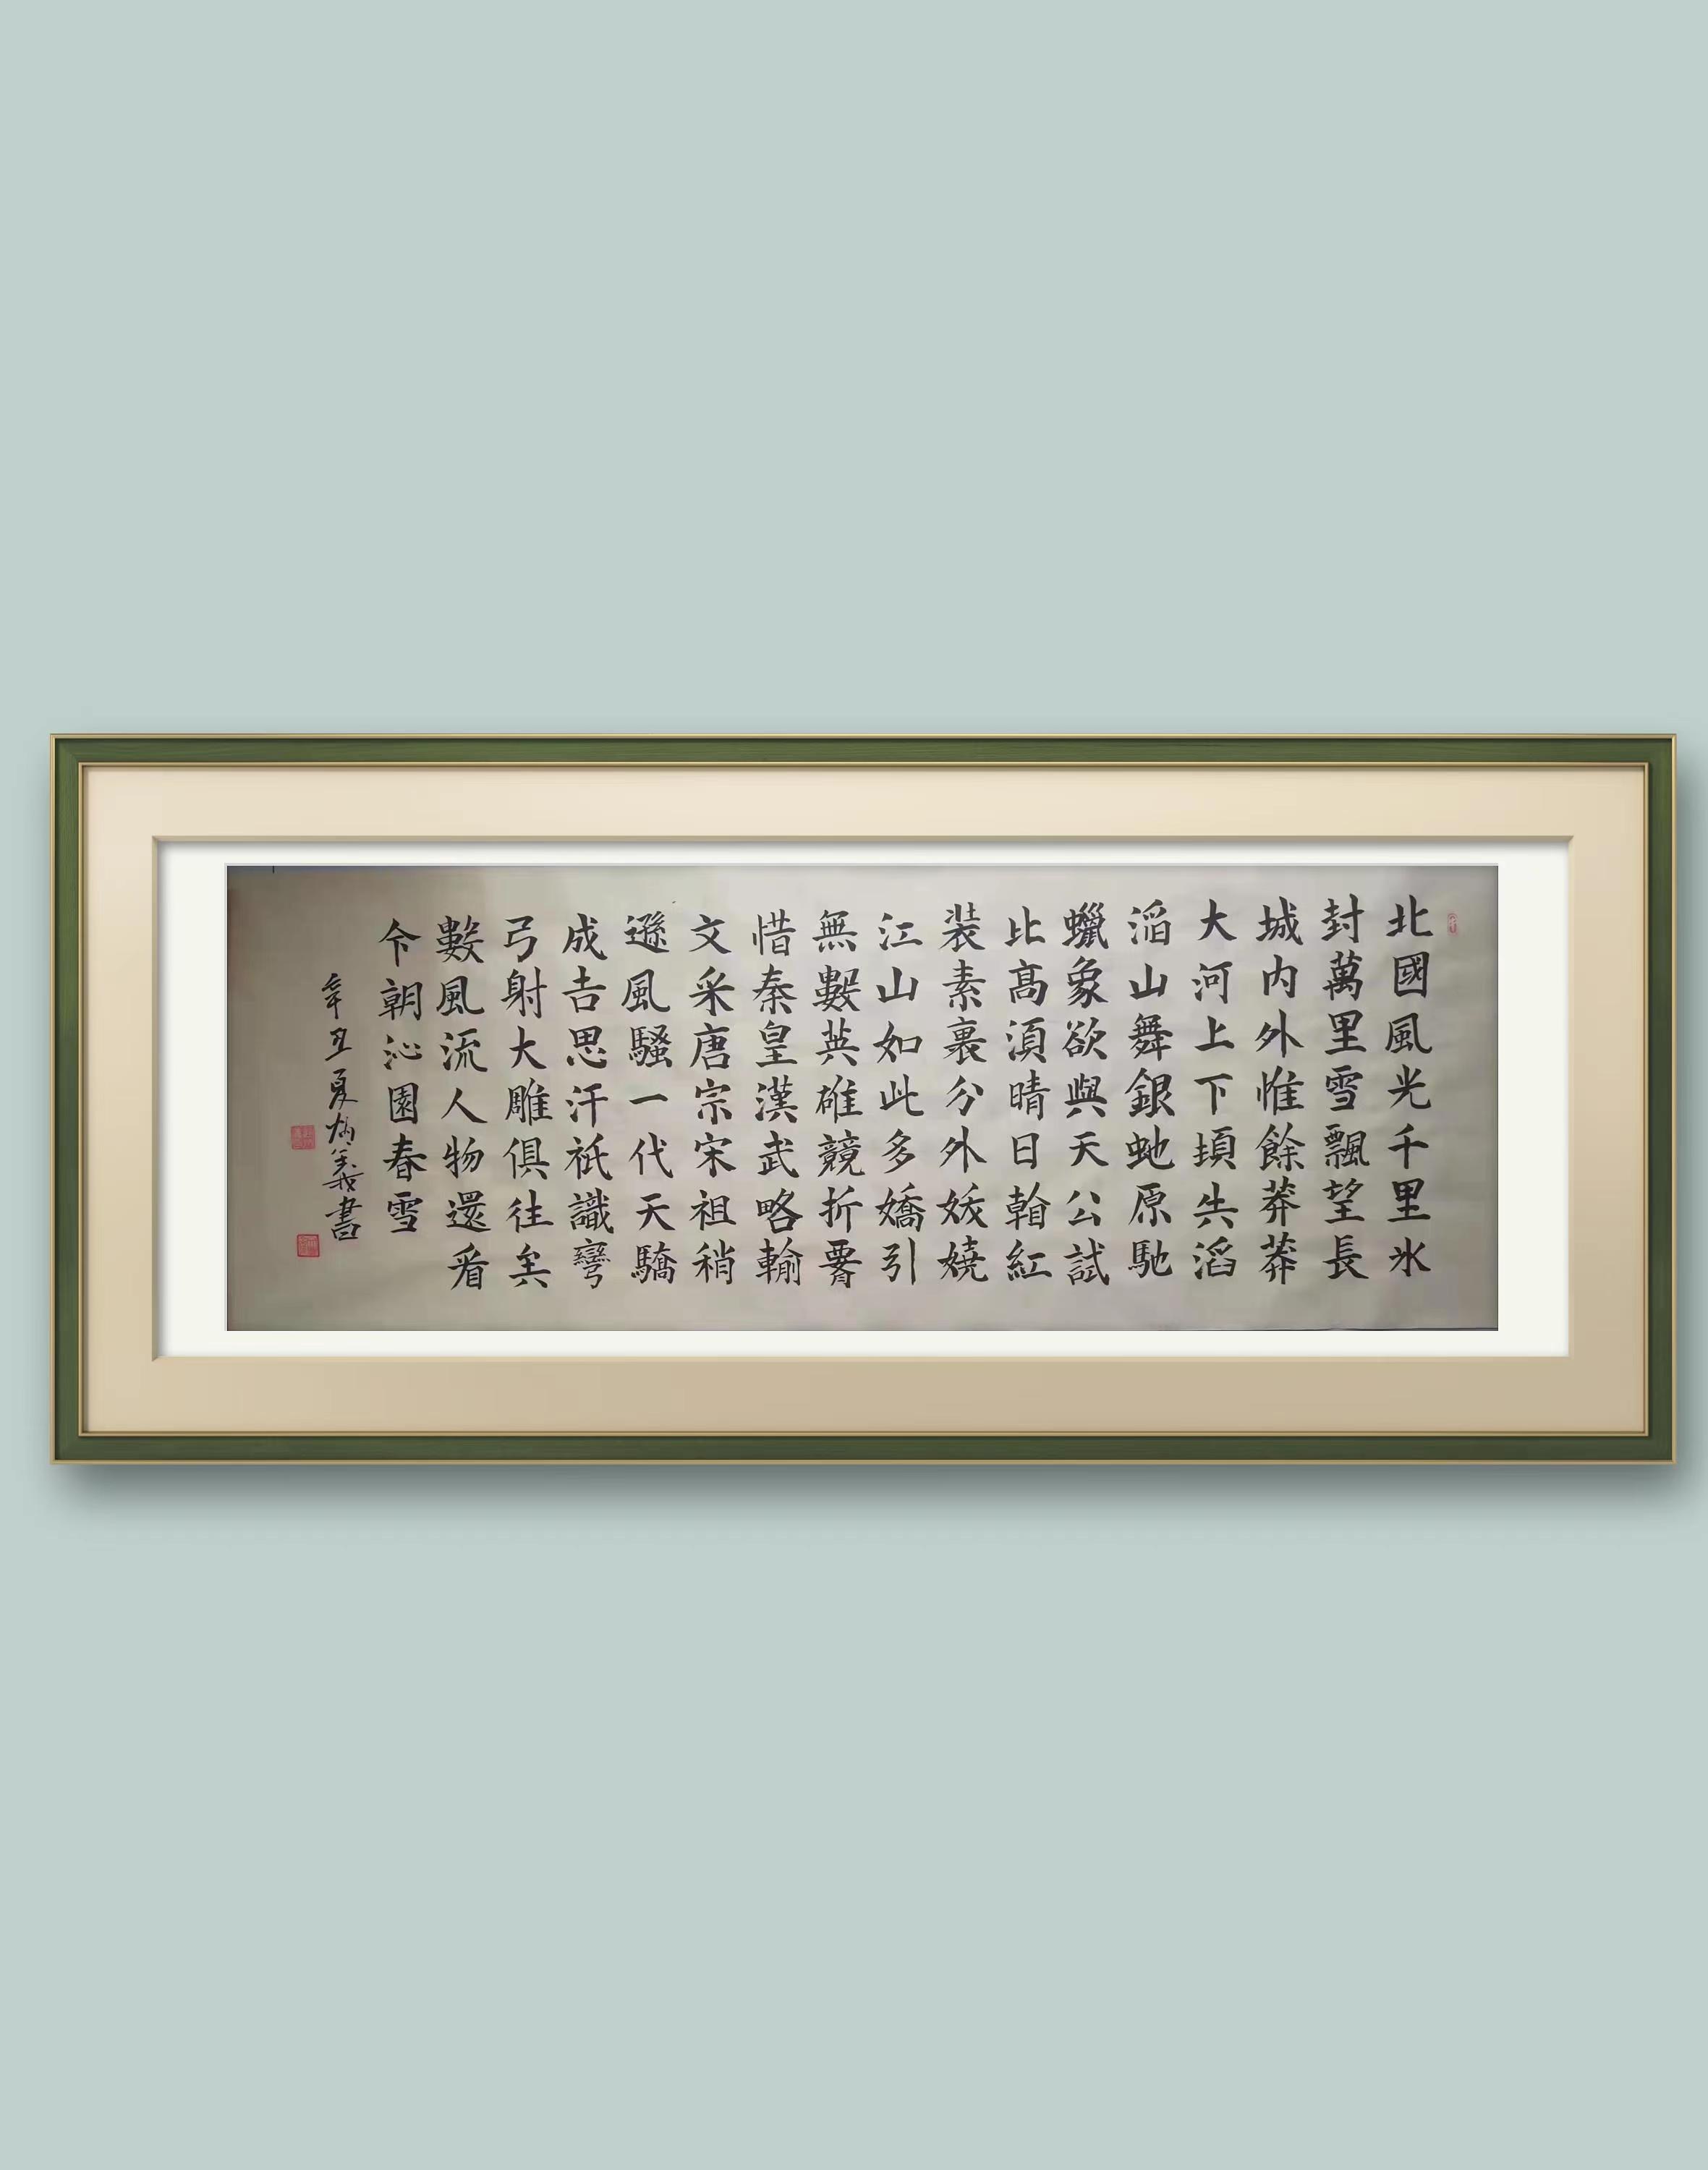 北國風光千里氷
封萬里雪飄望長
城内外惟餘莽莽
大河上下頃失滔
滔山舞銀虵原馳
蠟象欲與天公試
比髙湏晴日翰紅
装素裹分外妖嬈
江山如此多嬌引
無數英雄競折要
惜秦皇漢武略輸
文采唐宗宋祖稍
遜風騷一代天驕
成吉思汗祇識彎
弓射大雕俱往矣
數風流人物還看
今朝沁園春雪
辛丑夏炳義書